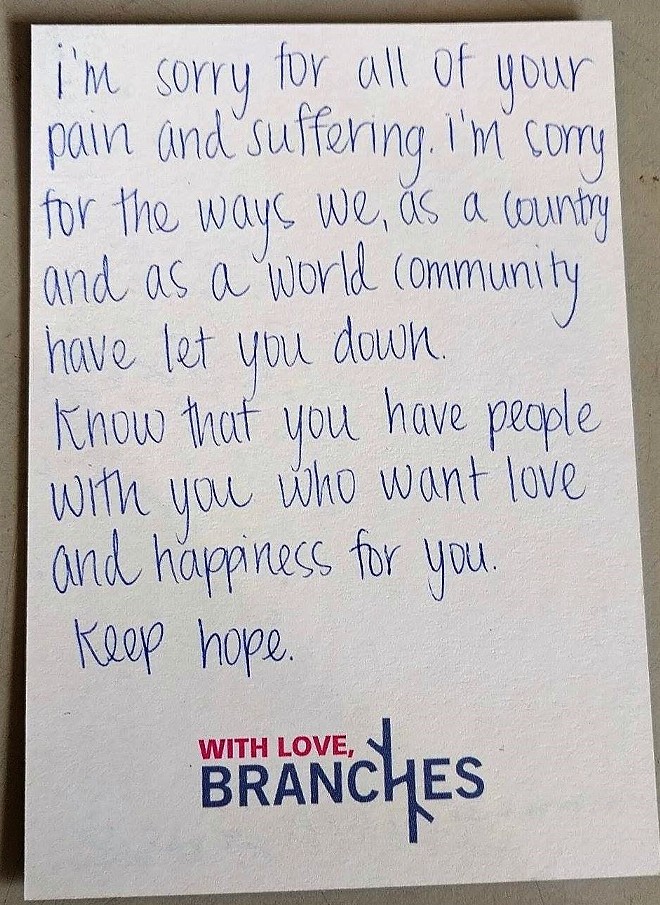 i'm sorry for all of your
pain and suffering. i'm sorry
for the ways we, as a country
and as a world community
have let you down.
Know that you have people
with you who want love
and happiness for you.
Keep hope.
WITH LOVE,
BRANCHES